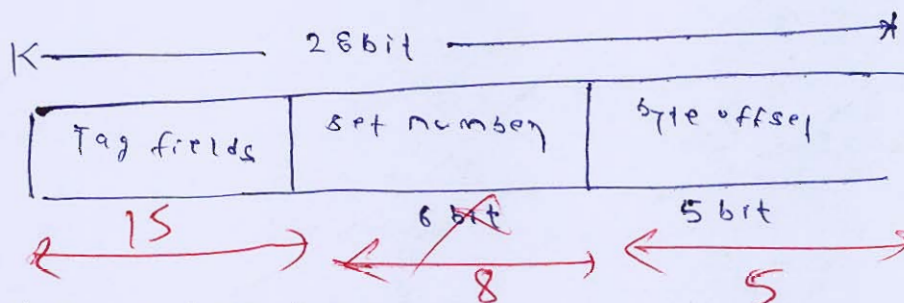 28 bit
Tag fields set number byte offset
6 bit 5 bit
15 8 5